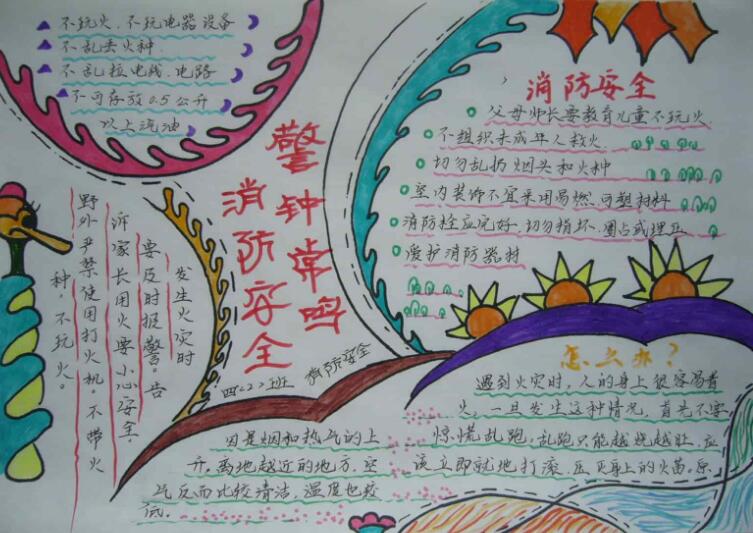 不玩火、不玩电器设备
不乱丢火种
不乱拉电线、电路
不可存放0.5公升
以上汽油
警钟常鸣
消防安全
四〈2〉班
消防安全
消防安全
父母师长要教育儿童不玩火
不组织未成年人救火
切勿乱扔烟头和火种
室内装饰不宜采用易燃、可塑材料
消防栓应完好,切勿损坏、圈占或埋压
爱护消防器材
发生火灾时
要及时报警。告
诉家长用火要小心安全,
野外严禁使用打火机。不带火
种,不玩火。
怎么办?
遇到火灾时,人的身上很容易着
火,一旦发生这种情况,首先不要
惊慌乱跑,乱跑只能越烧越旺,应
该立即就地打滚,压灭身上的火苗,原
因是烟和热气的上
升,离地越近的地方,空
气反而比较清洁,温度也较
低。